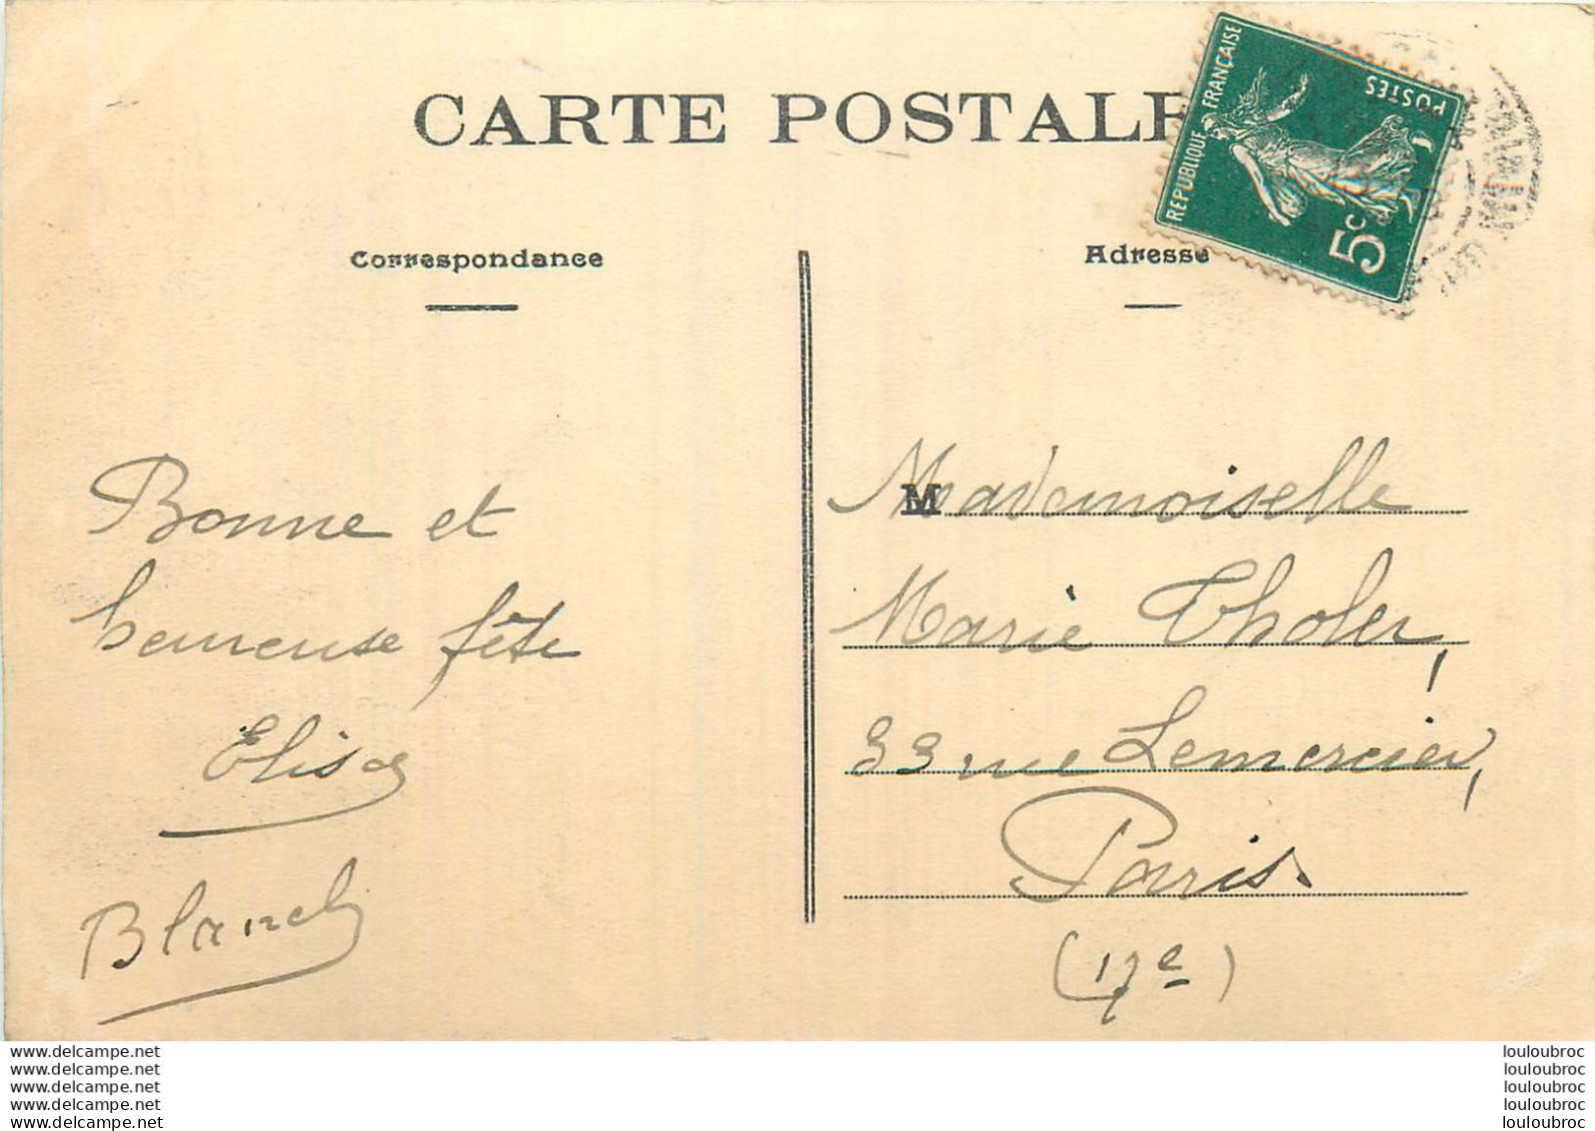 CARTE POSTALE
RÉPUBLIQUE FRANÇAISE
POSTES
5c
Correspondance
Adresse
Bonne et
heureuse fête
Elisa
Blanch
M
Mademoiselle
Marie Tholer,
33 rue Lemercier,
Paris.
(17e)
www.delcampe.net
www.delcampe.net
www.delcampe.net
www.delcampe.net
www.delcampe.net
louloubroc
louloubroc
louloubroc
louloubroc
louloubroc